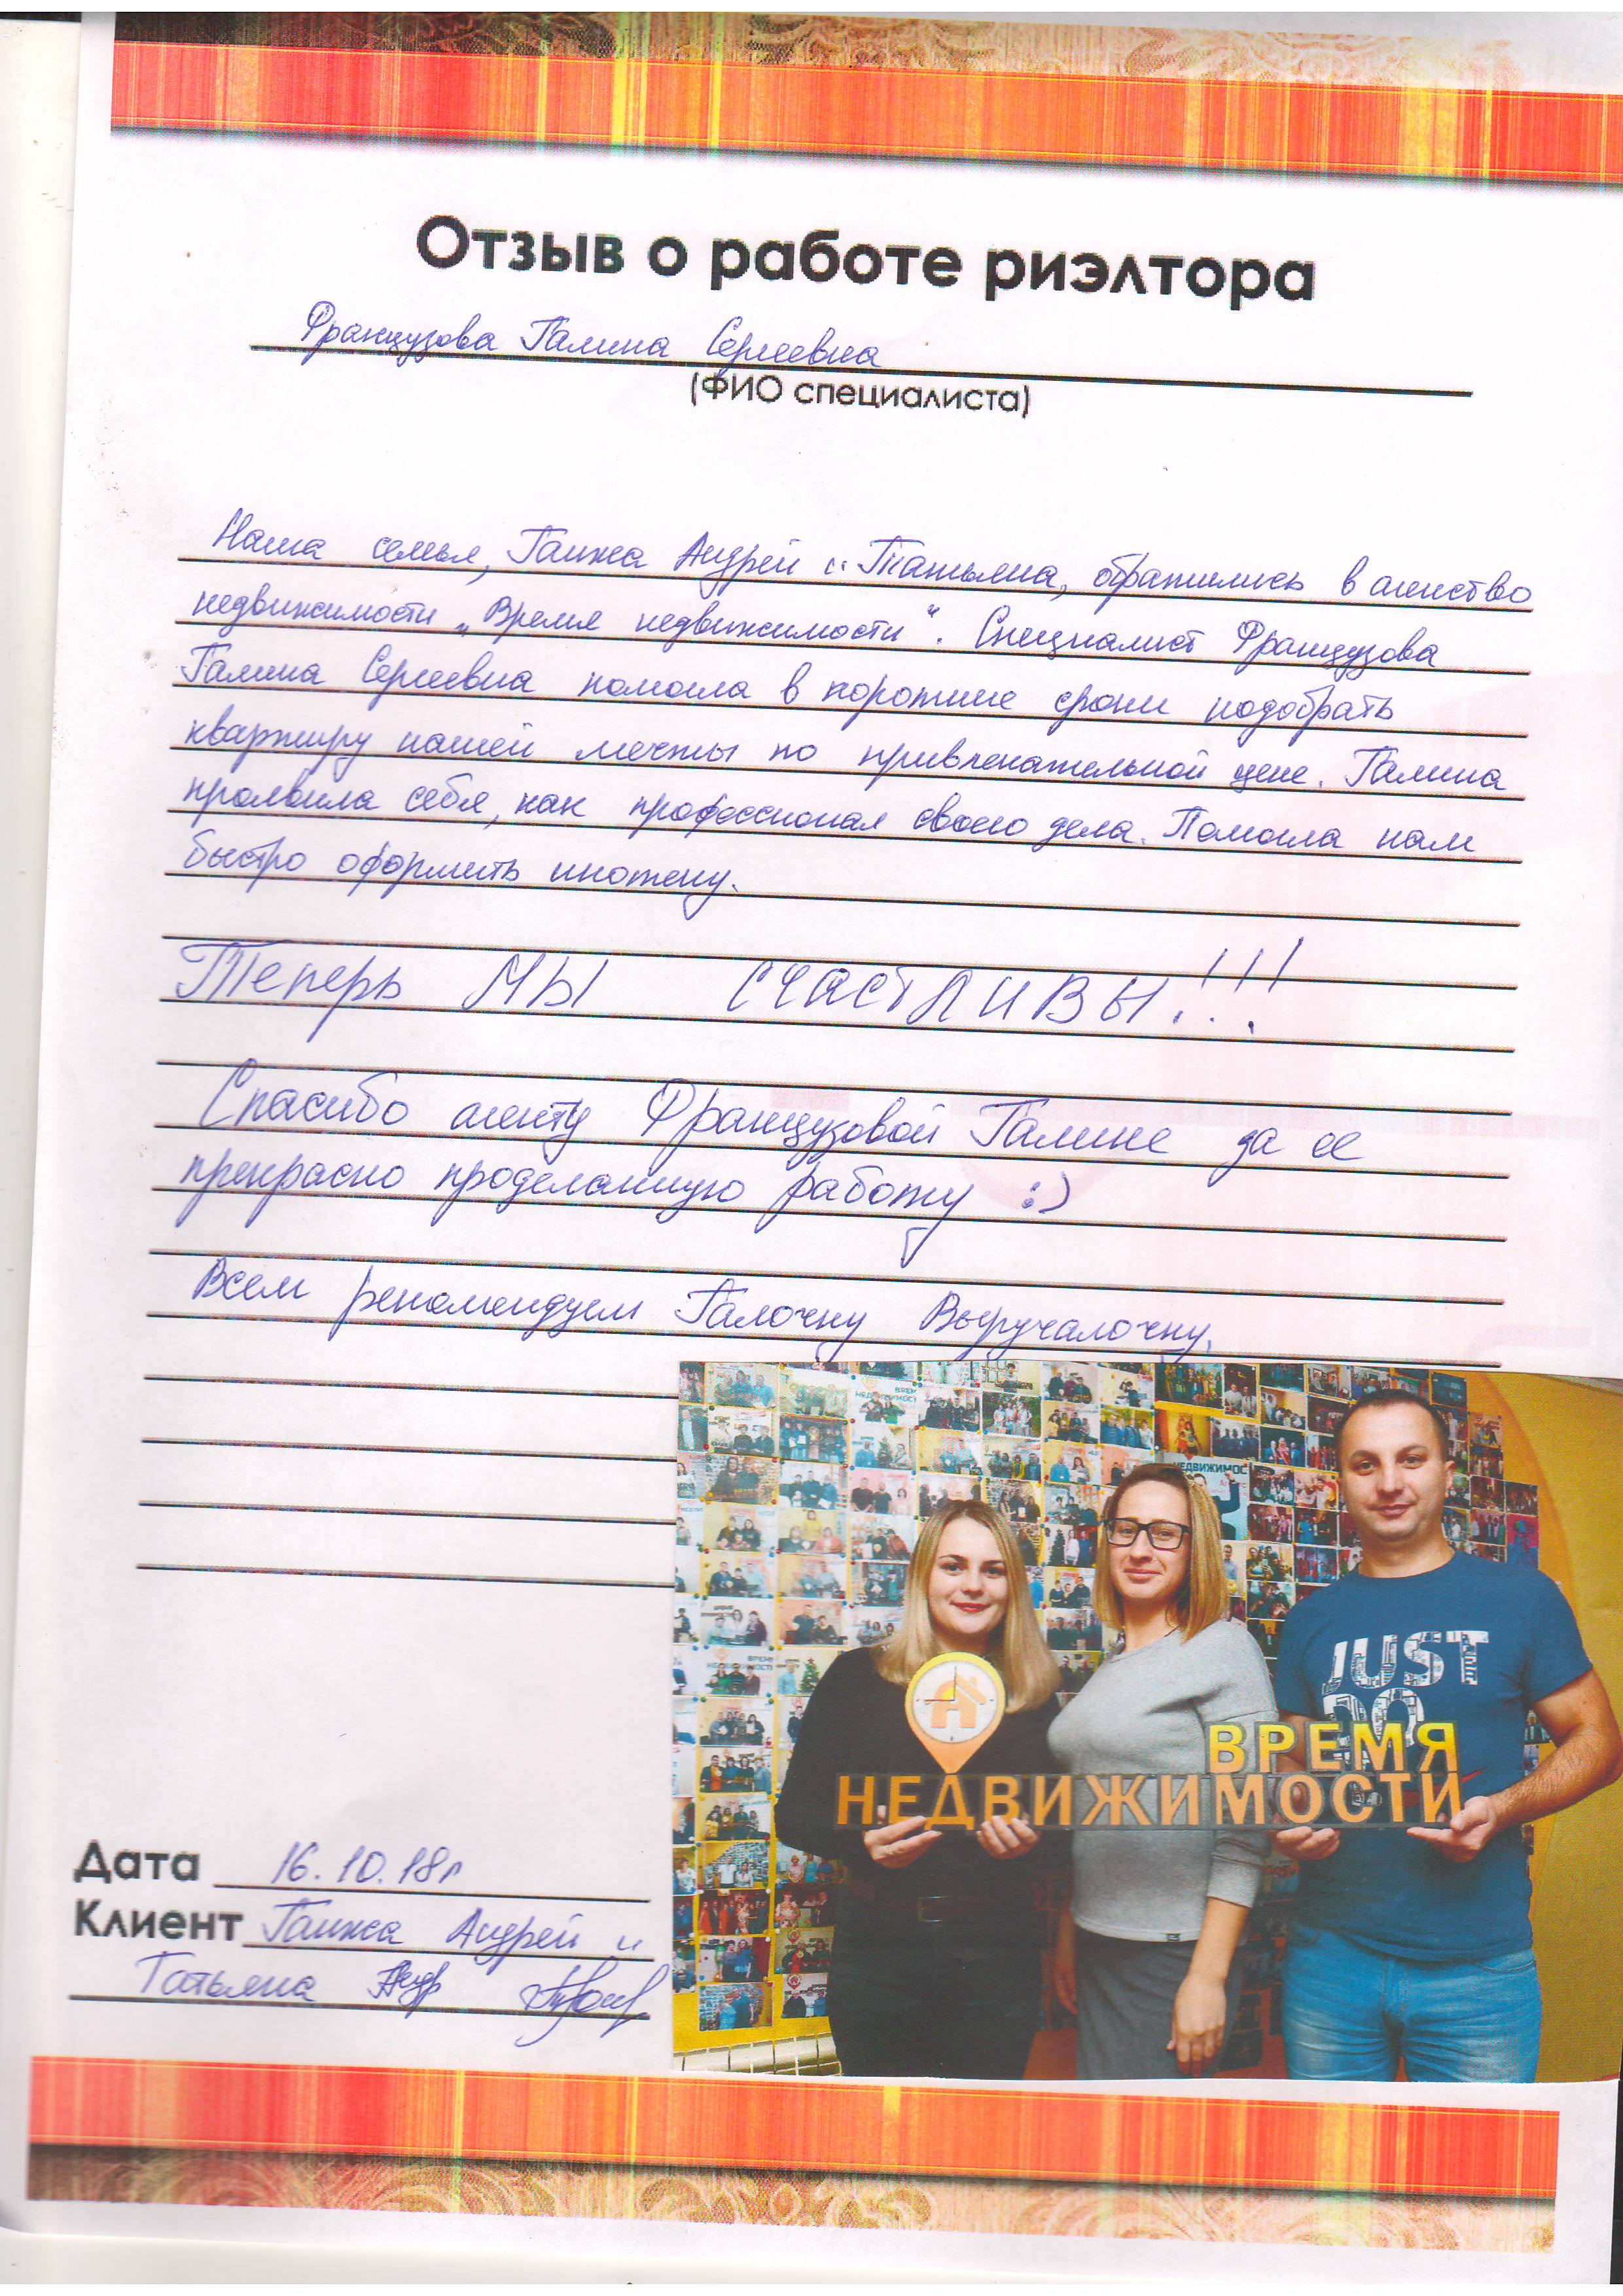 Отзыв о работе риэлтора
Французова Галина Сергеевна
(ФИО специалиста)
Наша семья, Ганжа Андрей и Татьяна, обратились в агенство
недвижимости „Время недвижимости“. Специалист Французова
Галина Сергеевна помогла в короткие сроки подобрать
квартиру нашей мечты по привлекательной цене. Галина
проявила себя, как профессионал своего дела. Помогла нам
быстро оформить ипотеку.
Теперь МЫ СЧАСТЛИВЫ!!!
Спасибо агенту Французовой Галине за ее
прекрасно проделанную работу :)
Всем рекомендуем Галочку Выручалочку.
JUST
DO
ВРЕМЯ
НЕДВИЖИМОСТИ
Дата 16.10.18г
Клиент Ганжа Андрей и
Татьяна